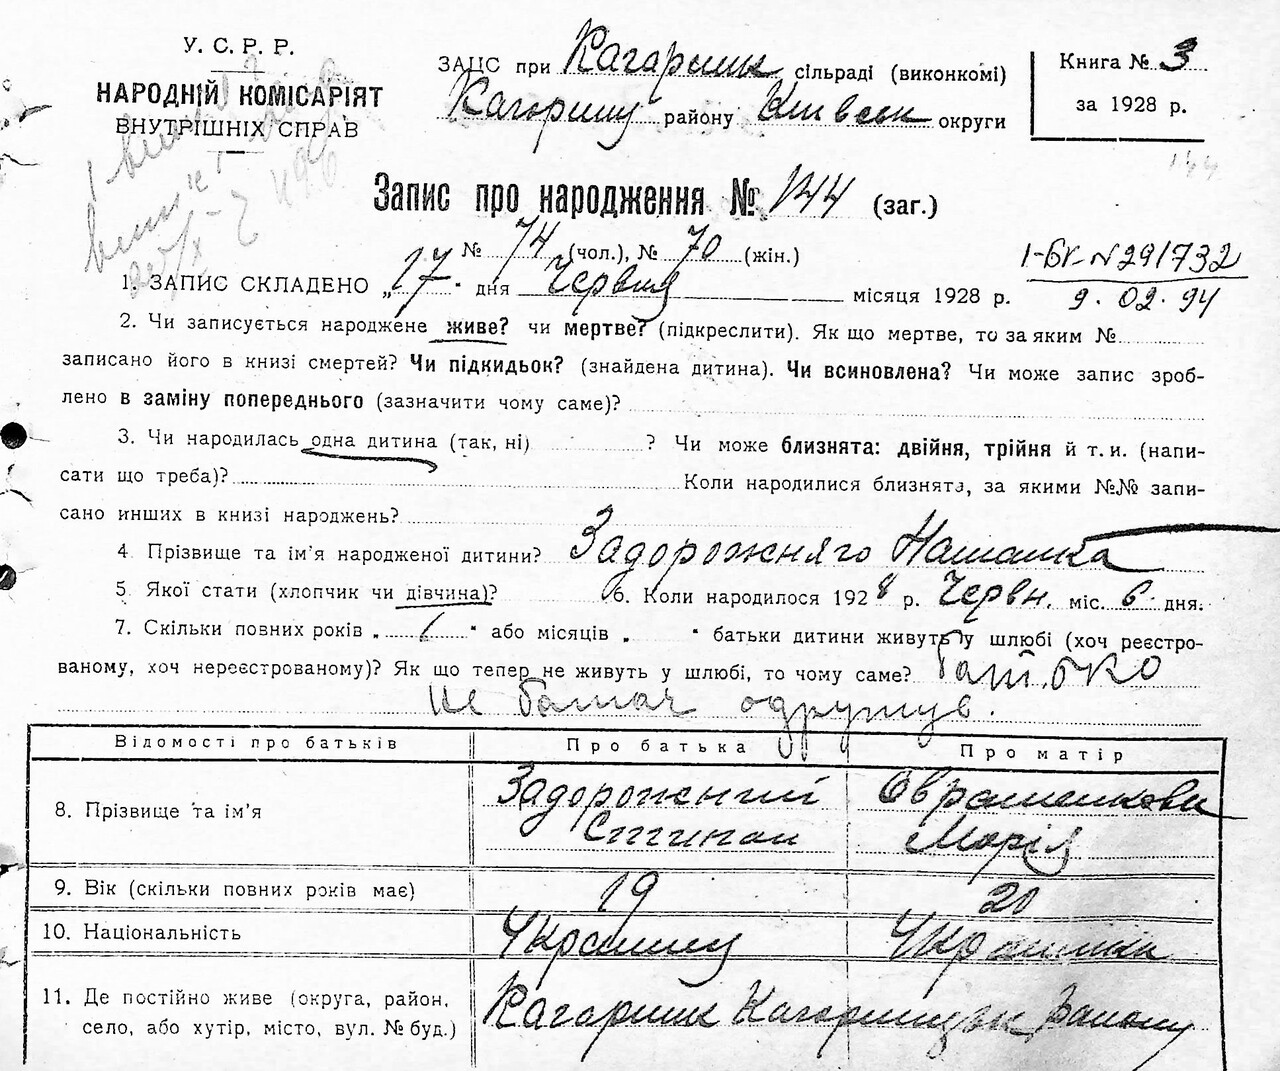 У. С. Р. Р.
НАРОДНІЙ КОМІСАРІЯТ
ВНУТРІШНІХ СПРАВ
ЗАЦС при Кагарлик сільраді (виконкомі)
району Київськ округи
Книга № 3
за 1928 р.
144
Запис про народження № 144 (заг.)
№ 74 (чол.), № 70 (жін.)
І-БК №291732
9. 02. 94
1. ЗАПИС СКЛАДЕНО „17" дня Червня місяця 1928 р.
2. Чи записується народжене живе? чи мертве? (підкреслити). Як що мертве, то за яким №
записано його в книзі смертей? Чи підкидьок? (знайдена дитина). Чи всиновлена? Чи може запис зроб-
лено в заміну попереднього (зазначити чому саме)?
3. Чи народилась одна дитина (так, ні) ? Чи може близнята: двійня, трійня й т. и. (напи-
сати що треба)? Коли народилися близнята, за якими №№ запи-
сано инших в книзі народжень?
4. Прізвище та ім'я народженої дитини? Задорожняго Наталка
5. Якої стати (хлопчик чи дівчина)? 6. Коли народилося 1928 р. Червн. міс. 6 дня.
7. Скільки повних років „ 1 " або місяців „ " батьки дитини живуть у шлюбі (хоч реєстро-
ваному, хоч нереєстрованому)? Як що тепер не живуть у шлюбі, то чому саме? батько
не бачач одружув.
Відомості про батьків Про батька Про матір
8. Прізвище та ім'я Задорожний Марія
9. Вік (скільки повних років має) 19 20
10. Національність Українець Українка
11. Де постійно живе (округа, район,
село, або хутір, місто, вул. № буд.) Кагарлик Кагарлицьк. району